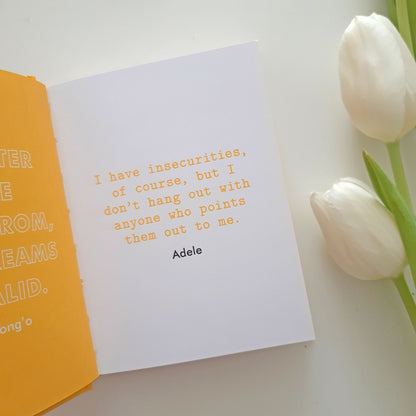 TER
E
ROM,
REAMS
ALID.
ong'o
I have insecurities,
of course, but I
don't hang out with
anyone who points
them out to me.
Adele